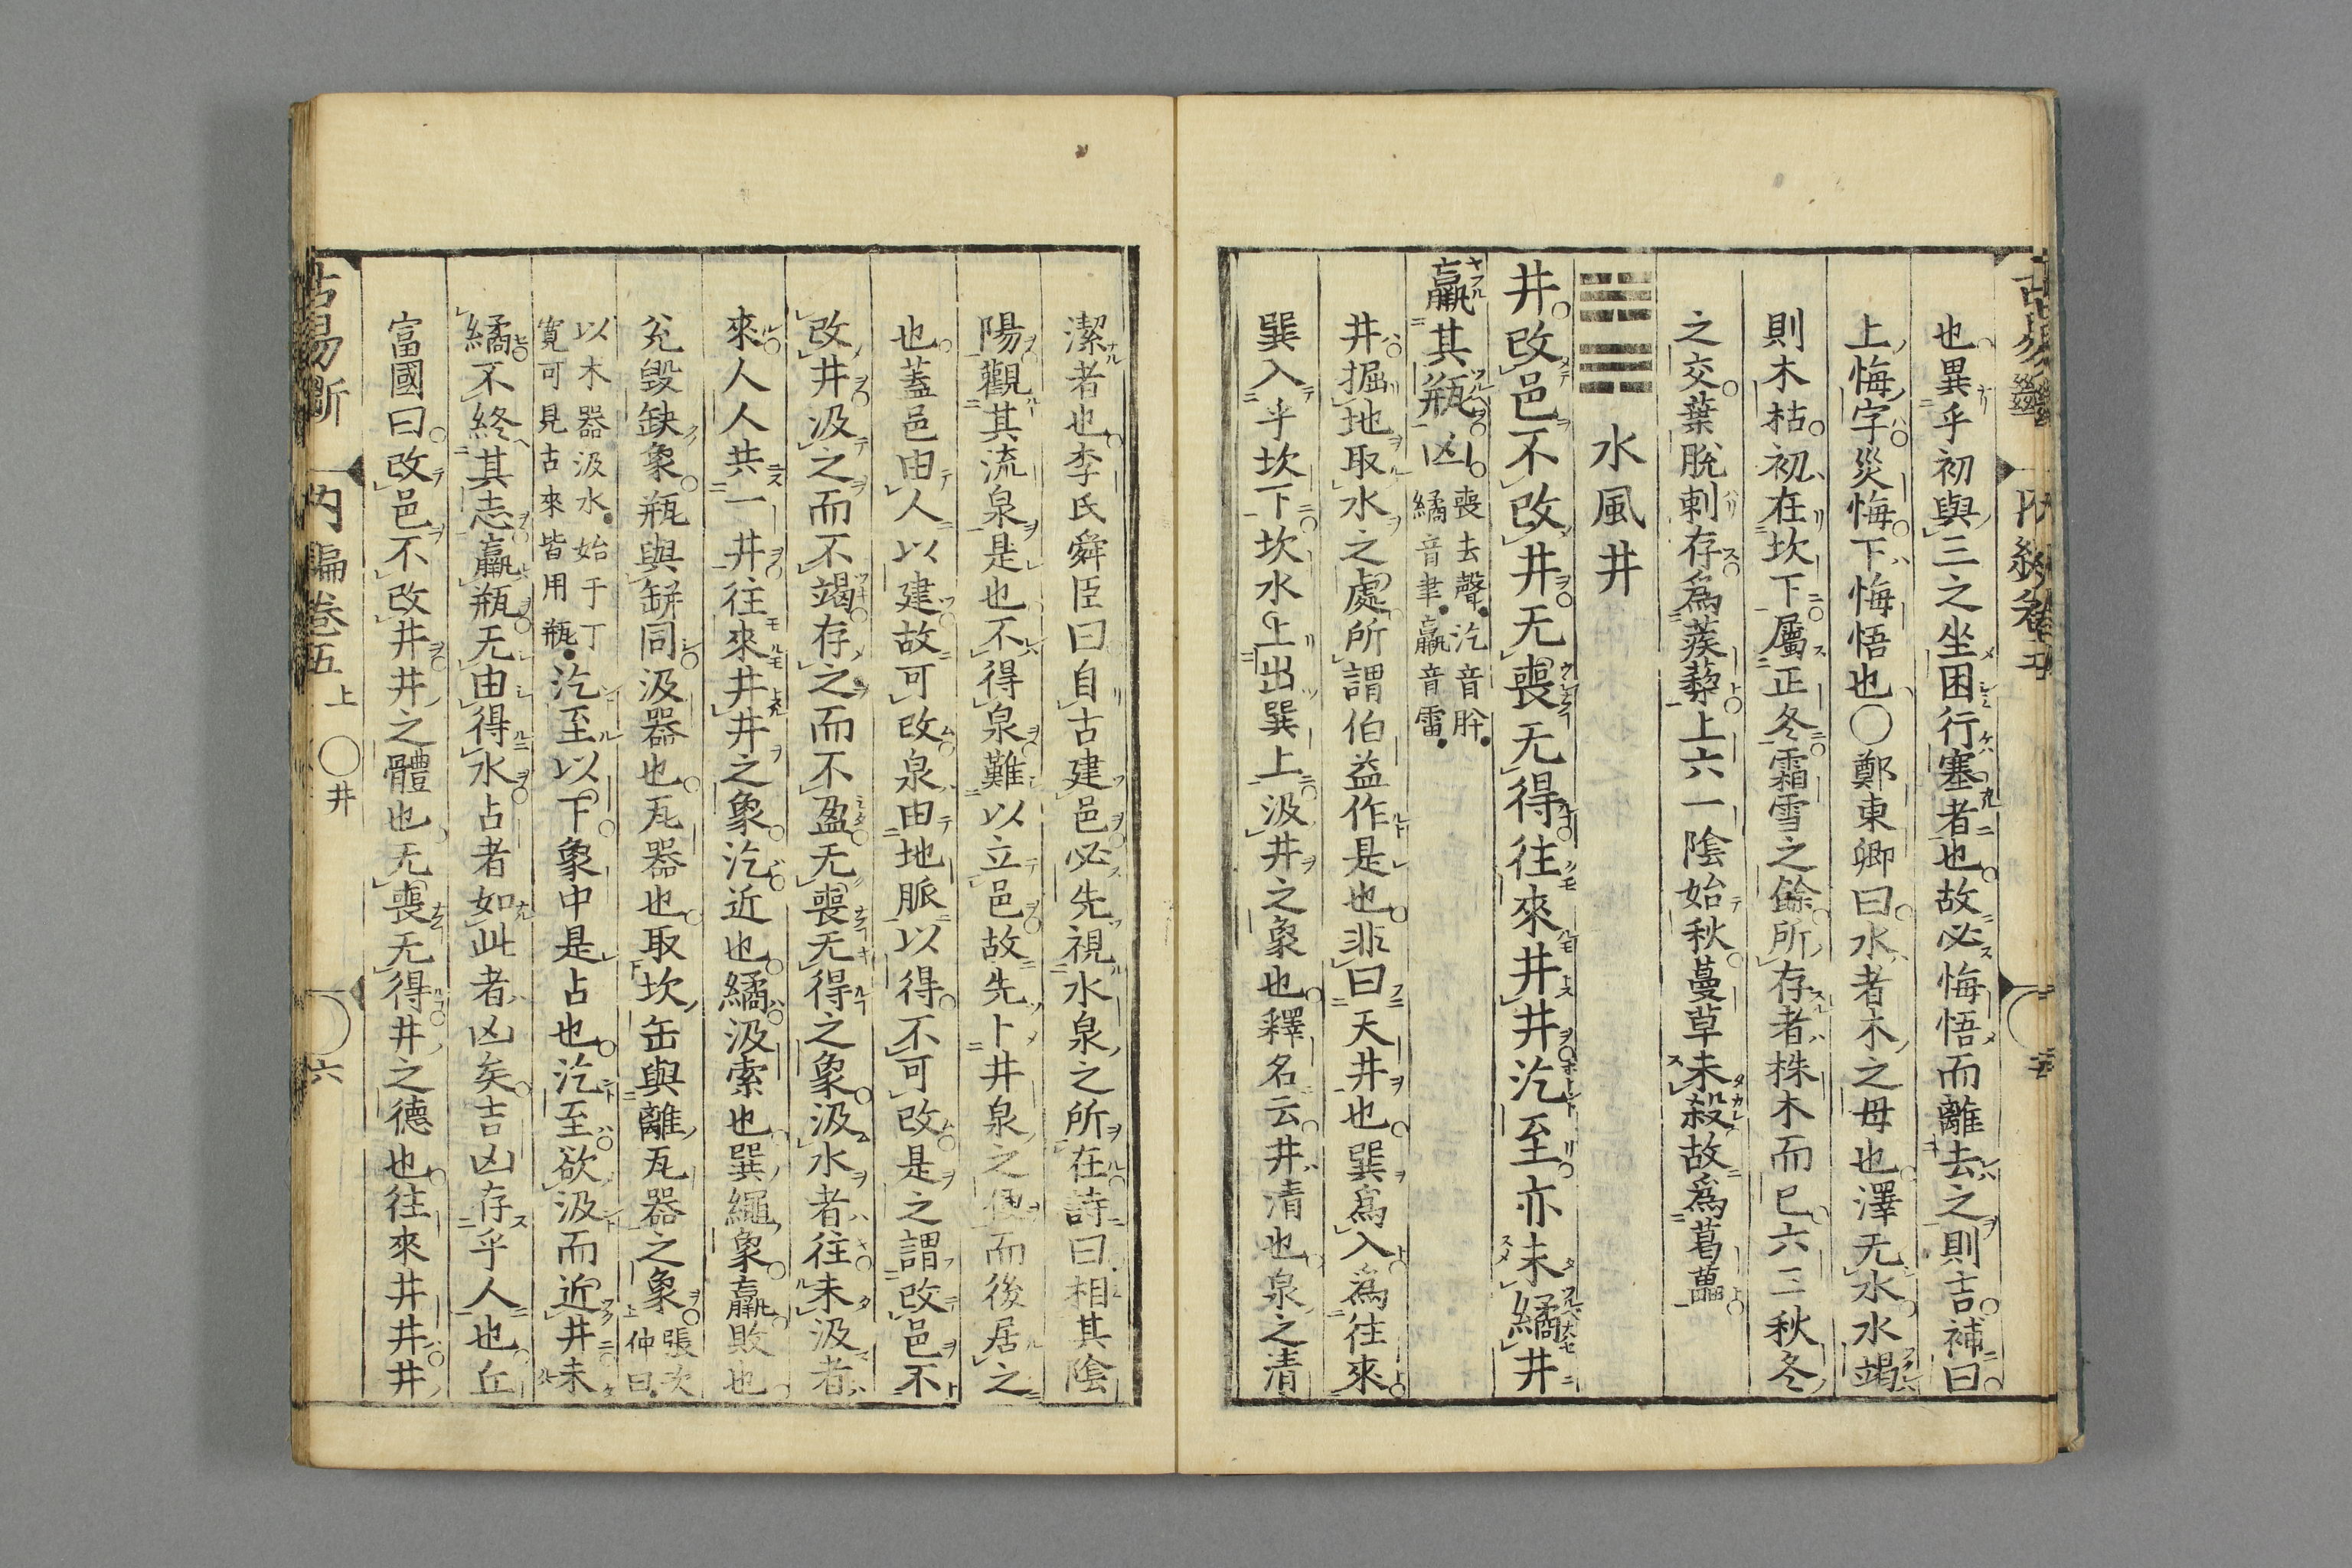 也異乎初與三之坐困行塞者也故必悔悟而離去之則吉補曰
上悔字災悔下悔悟也○鄭東卿曰水者木之母也澤无水水竭
則木枯初在坎下屬正冬霜雪之餘所存者株木而已六三秋冬
之交葉脫刺存爲蒺藜上六一陰始秋蔓草未殺故爲葛藟
水風井
井改邑不改井无喪无得往來井井汔至亦未繘井
羸其瓶凶
喪去聲汔音肸
繘音聿羸音雷
井掘地取水之處所謂伯益作是也非曰天井也巽爲入爲往來
巽入乎坎下坎水上出巽上汲井之象也釋名云井清也泉之清
潔者也李氏舜臣曰自古建邑必先視水泉之所在詩曰相其陰
陽觀其流泉是也不得泉難以立邑故先卜井泉之便而後居之
也蓋邑由人以建故可改泉由地脈以得不可改是之謂改邑不
改井汲之而不竭存之而不盈无喪无得之象汲水者往未汲者
來人人共一井往來井井之象汔近也繘汲索也巽繩象羸敗也
兊毀缺象瓶與缾同汲器也瓦器也取坎缶與離瓦器之象
張次
仲曰
以木器汲水始于丁
寛可見古來皆用瓶
汔至以下象中是占也汔至欲汲而近井未
繘不終其志羸瓶无由得水占者如此者凶矣吉凶存乎人也丘
富國曰改邑不改井井之體也无喪无得井之德也往來井井井
古易斷
內編卷五
上
○井
六